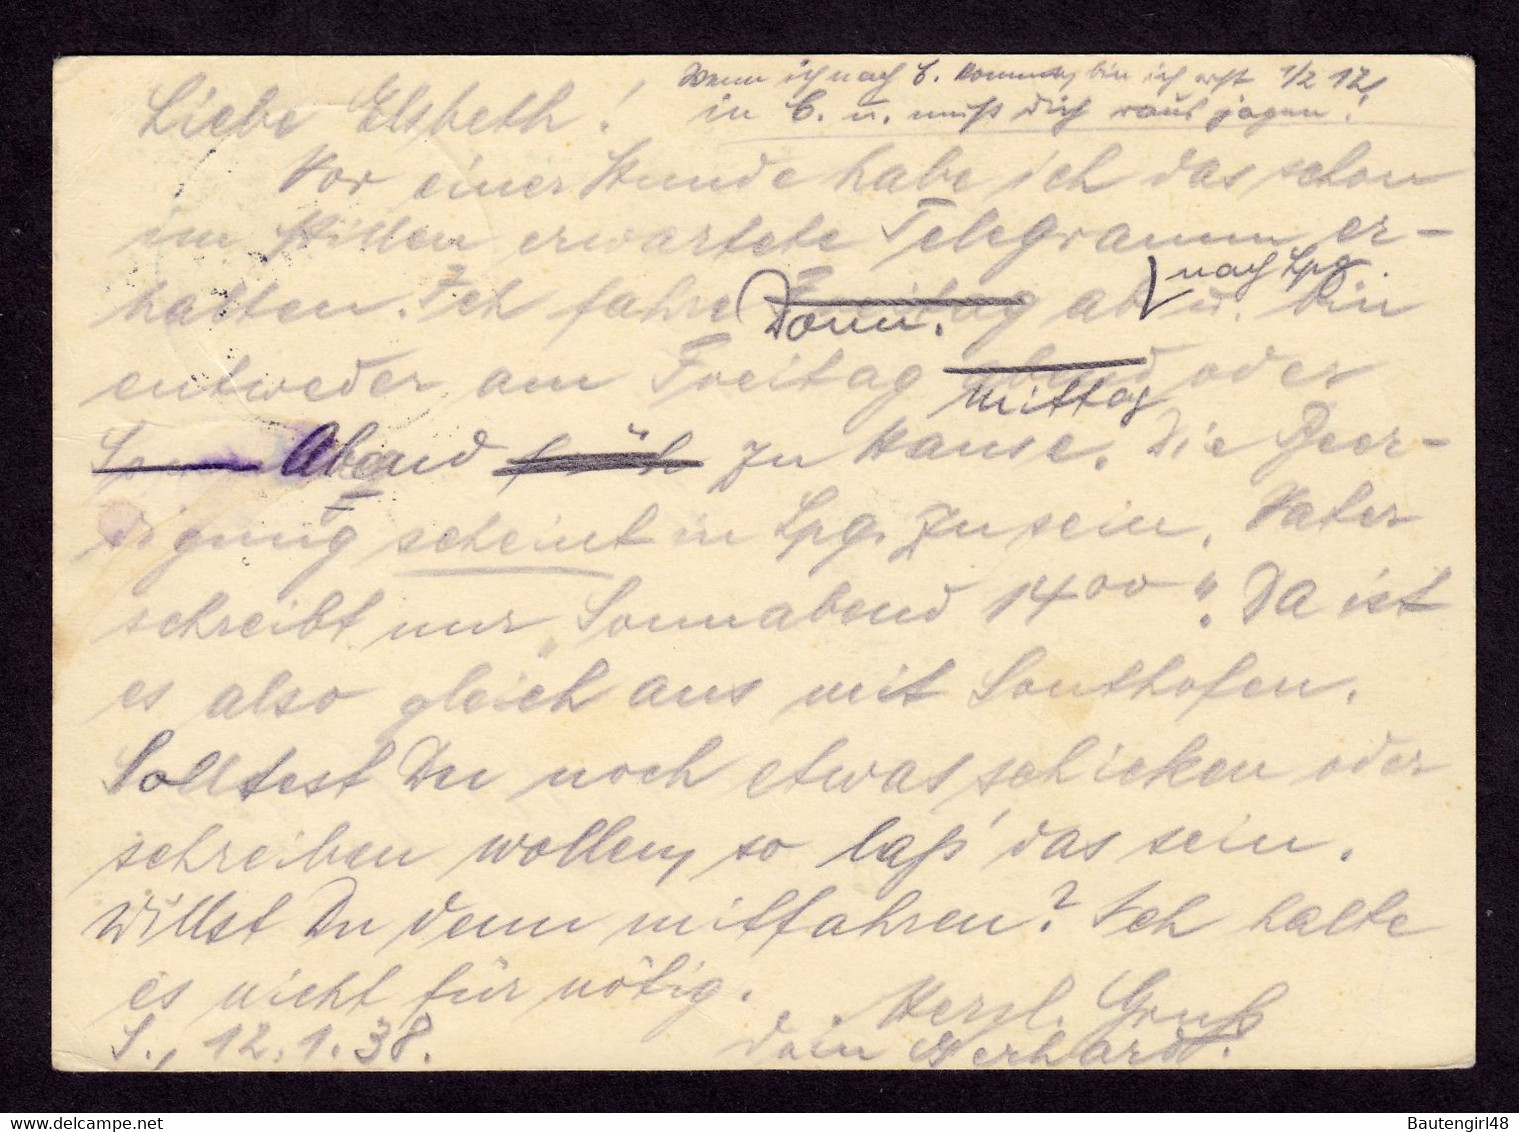 Wenn ich nach C. komme, bin ich erst 1/2 12
in C. u. muß dich raus jagen!
Liebe Elsbeth!
Vor einer Stunde habe ich das schon
im Stillen erwartete Telegramm er-
halten. Ich fahre Freitag Donn. ab nach Lpg. u. bin
entweder am Freitag abend Mittag oder
Abend früh zu Hause. Die Beer-
digung scheint in Lpg. zu sein. Vater
schreibt nur „Sonnabend 14⁰⁰“. Da ist
es also gleich aus mit Sonthofen.
Solltest Du noch etwas schicken oder
schreiben wollen, so laß' das sein.
Willst Du denn mitfahren? Ich halte
es nicht für nötig.
Herzl. Gruß
S., 12.1.38. Dein Gerhard.
delcampe.net
Bautengirl48